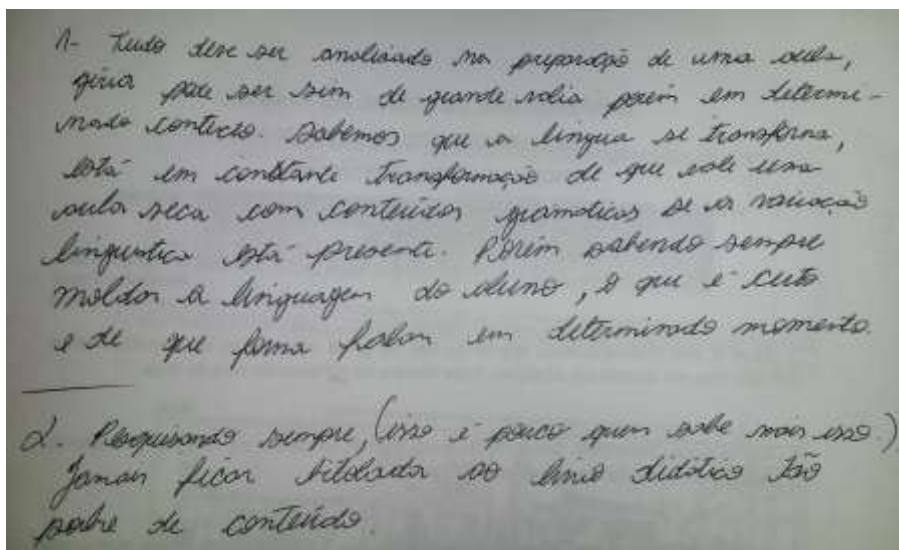 1- Tudo deve ser analisado na preparação de uma aula,
gíria pode ser sim de grande valia porém em determi-
nado contexto. Sabemos que a língua se transforma,
está em constante transformação de que vale uma
aula seca com conteúdos gramaticas se a variação
linguistica está presente. Porém sabendo sempre
moldar a linguagem do aluno, o que é culto
e de que forma falar em determinado momento.
2. Pesquisando sempre, (isso é pouco quem sabe mais isso.)
Jamais ficar bitolada ao livro didático tão
pobre de conteúdo.